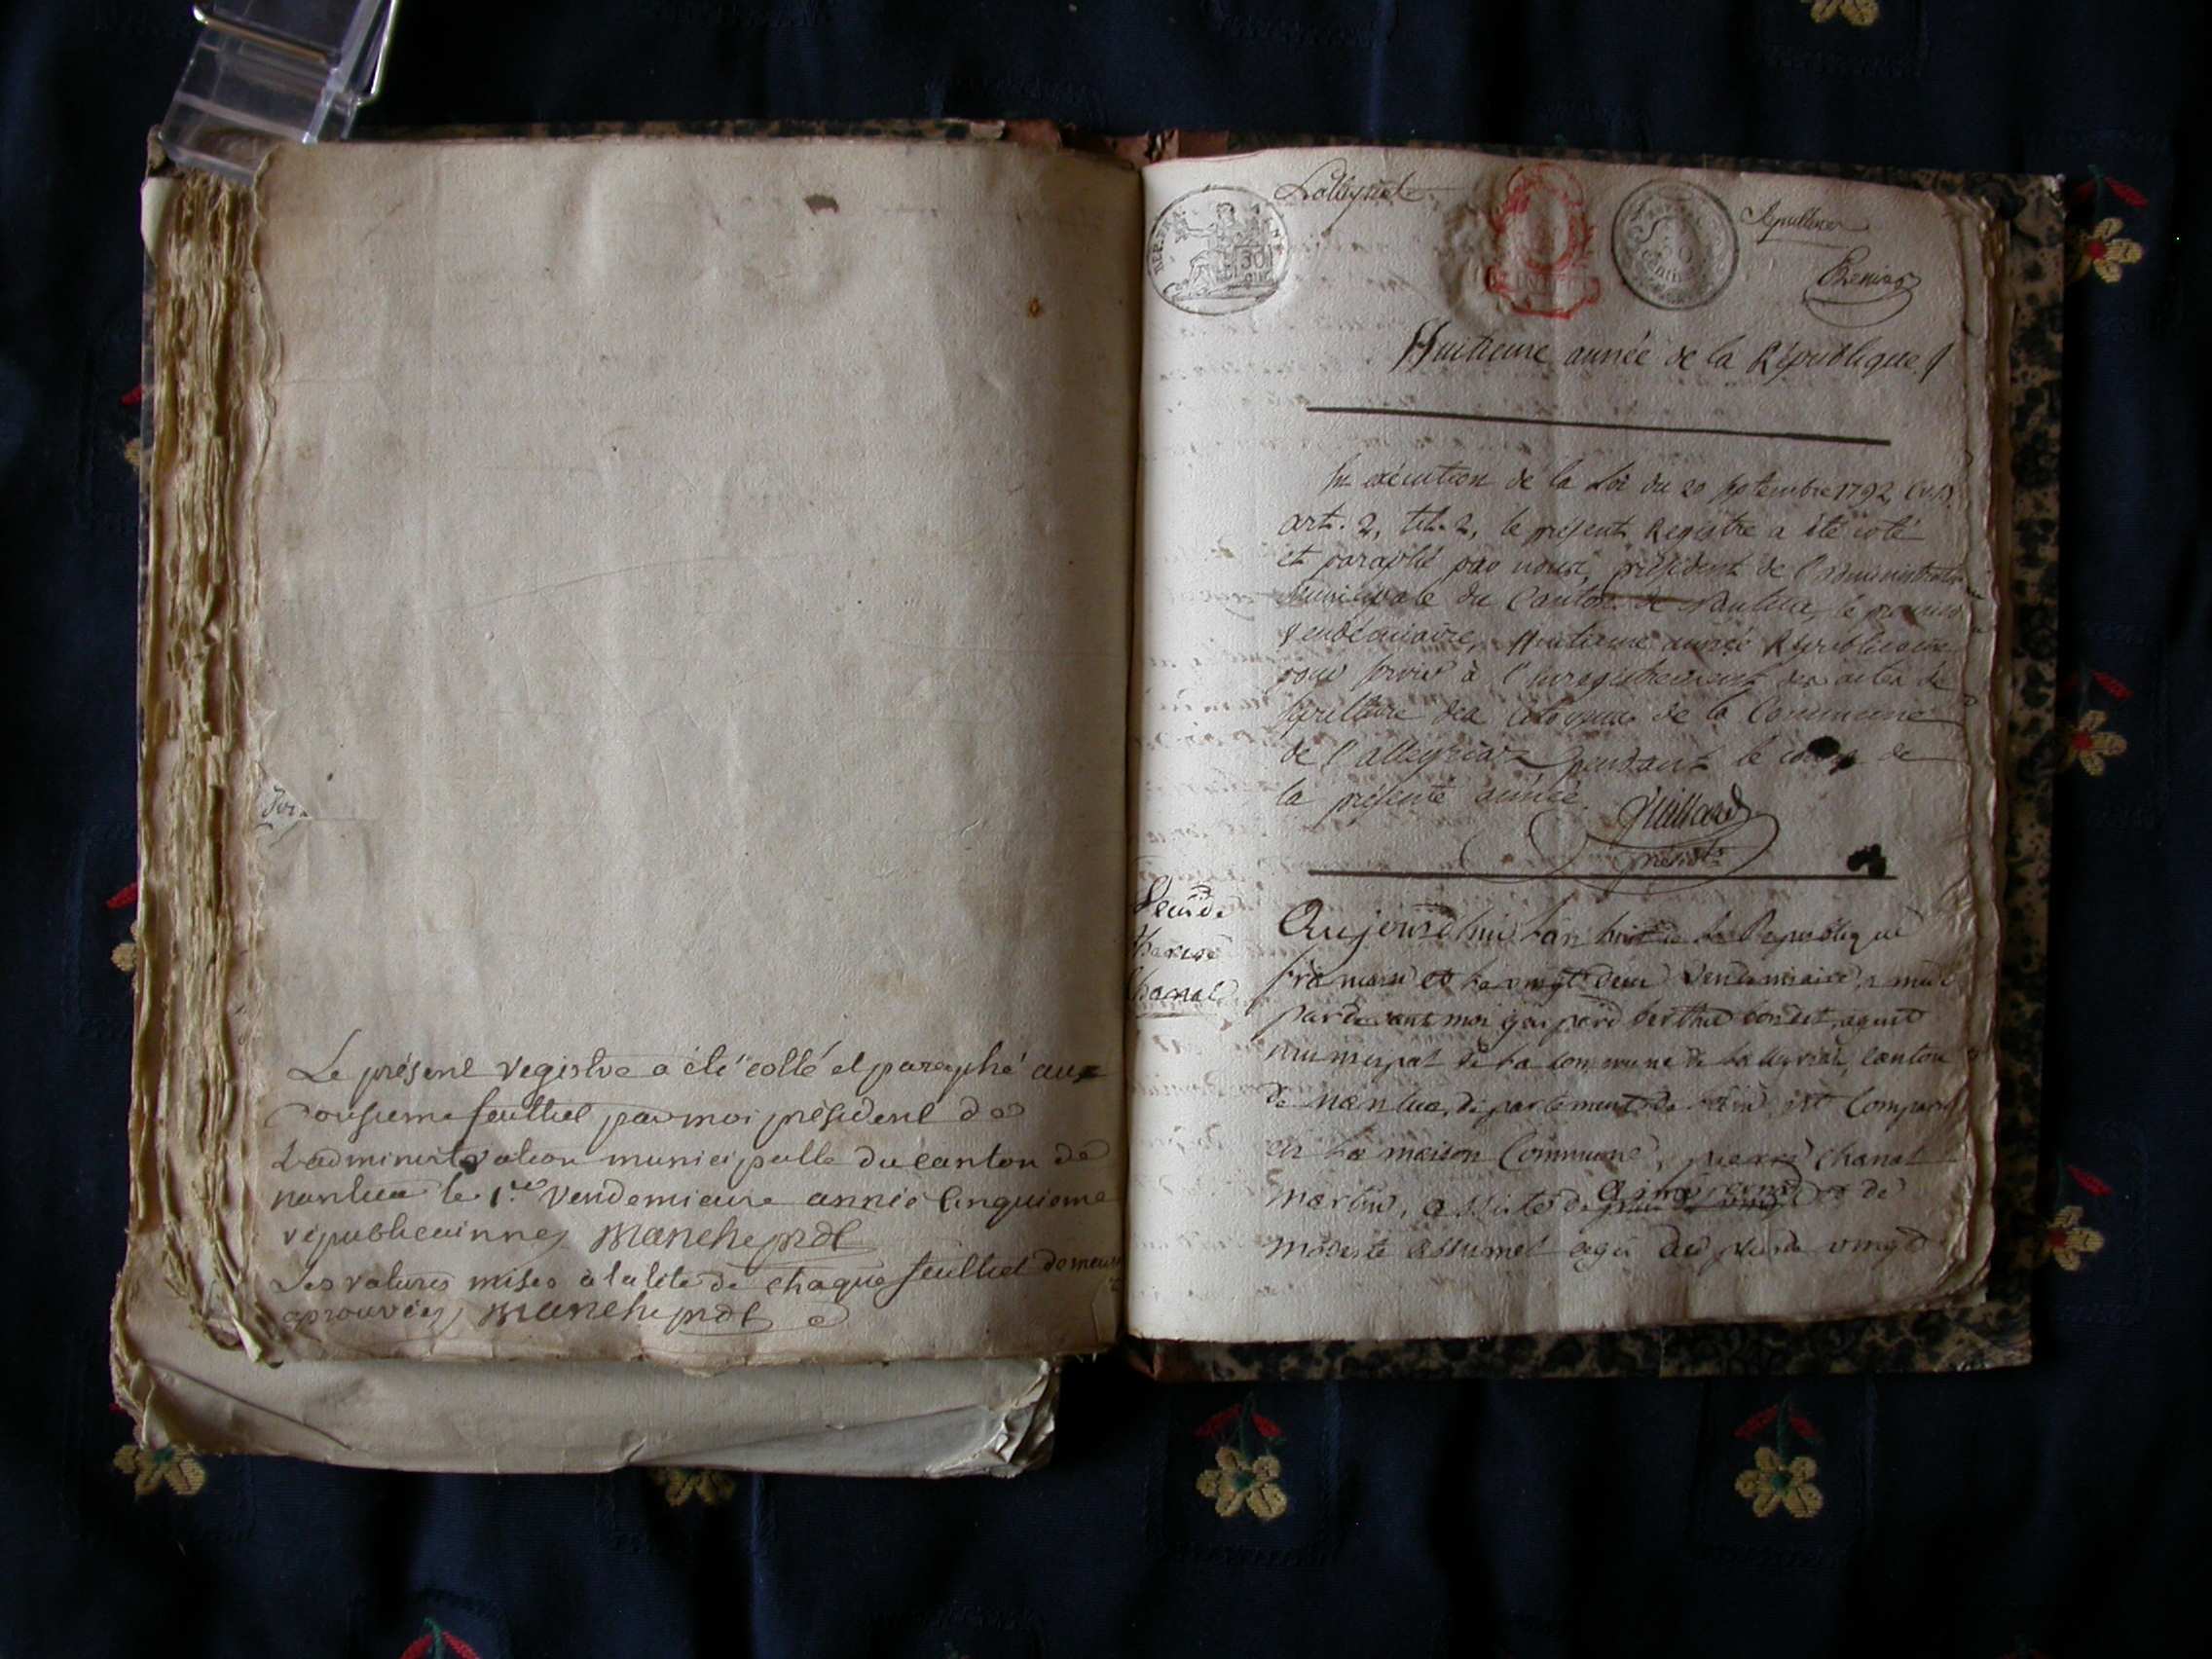 Le présent registre a été collé et paraphé aux
feulliet par moi président de
L'administration municipalle du canton de
nantua le 1.er vendemieire année cinquieme
républicainne
Les ratures mises à la tête de chaque feulliet demeure
aprouvées
REP. FRA
Huitieme année de la République
En exécution de la Loi du 20 septembre 1792, (v.s)
art. 2, tit. 2, le présent Registre a été coté
et paraphé par nous, président de l'administration
Municipale du Canton de Nantua, le premier
Vendémiaire, huitieme année Républicaine
pour servir à l'enregistrement des actes de
sépulture des citoyens de la Commune
de l'alleyriat pendant le cours de
la présente année.
présidt
Decé de
therese
Chanal
Aujourd'hui l'an huit de la Republique
francaise et le vingt deux vendemiaire, a midi
par devant moi berthet bondet, agent
municipal de la commune de lalleyriat, canton
de Nantua, departement de l'ain, est Comparu
en la maison Commune, pierre chanal
martin, assisté de et de
modeste assumel agés de plus de vingt